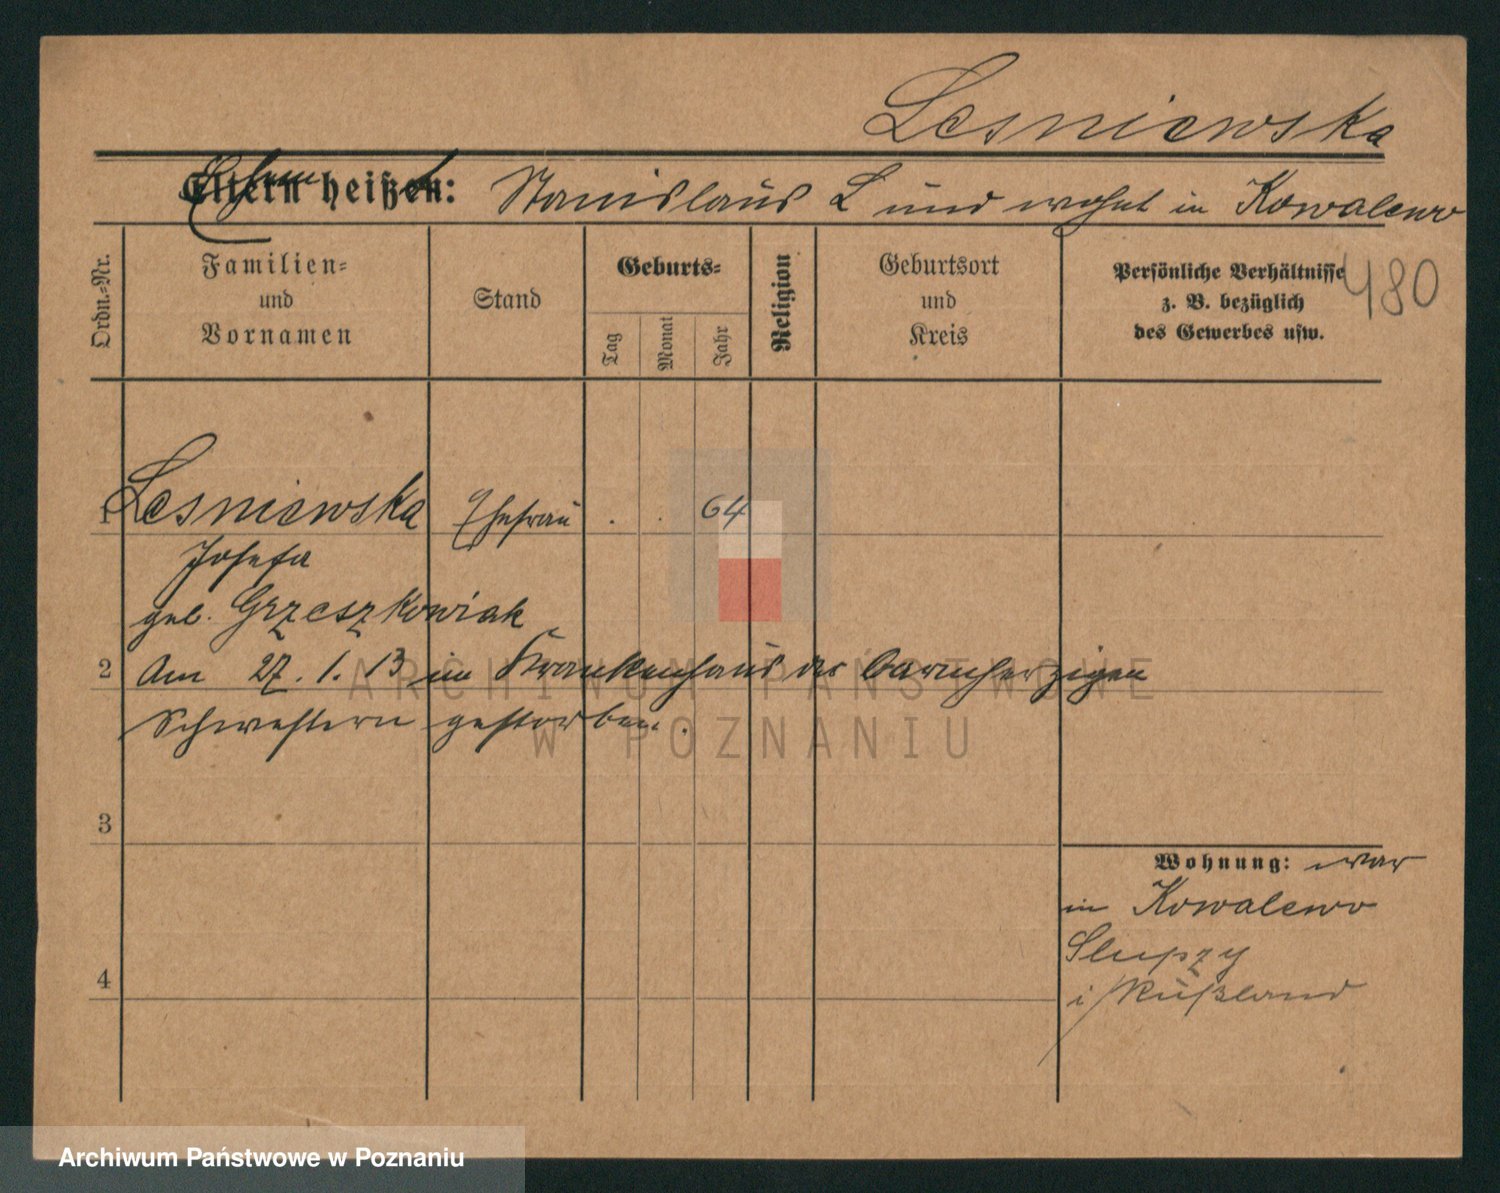 Lesniewska
Eltern heißen: Stanislaus L und wohnt in Kowalewo
Ordn.-Nr.
Familien-
und
Vornamen
Stand
Geburts-
Tag
Monat
Jahr
Religion
Geburtsort
und
Kreis
Persönliche Verhältnisse
z. B. bezüglich
des Gewerbes usw.
480
1 Lesniewska Ehefrau . . 64
Josefa
geb. Grzeszkowiak
2 Am 27.1.13 im Krankenhaus der barmherzigen
Schwestern gestorben.
3
4
Wohnung: war
in Kowalewo
Slupzy
i/Rußland
ARCHIWUM PAŃSTWOWE
W POZNANIU
Archiwum Państwowe w Poznaniu